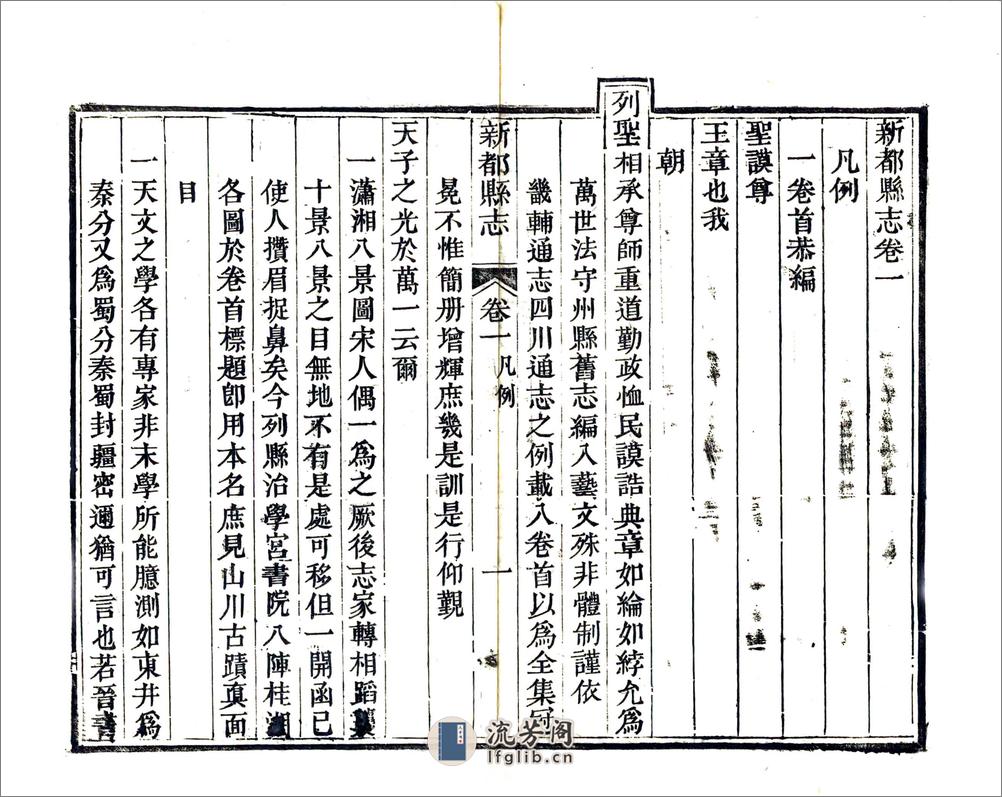 新都縣志卷一
凡例
一卷首恭編
聖謨尊
王章也我
朝
列聖相承尊師重道勤政恤民謨誥典章如綸如綍允爲
萬世法守州縣舊志編入藝文殊非體制謹依
畿輔通志四川通志之例載入卷首以爲全集冠
新都縣志 卷一 凡例 一
冕不惟簡册增輝庶幾是訓是行仰覲
天子之光於萬一云爾
一瀟湘八景圖宋人偶一爲之厥後志家轉相蹈襲
十景八景之目無地不有是處可移但一開函已
使人攢眉捉鼻矣今列縣治學宮書院八陣桂湖
各圖於卷首標題卽用本名庶見山川古蹟眞面
目
一天文之學各有專家非末學所能臆測如東井爲
秦分又爲蜀分秦蜀封疆密邇猶可言也若晉書
流芳阁
lfglib.cn